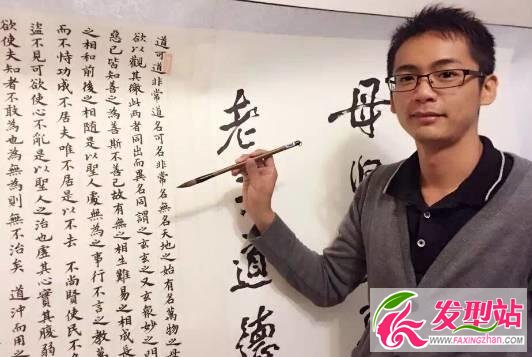 母
老
道德
道可道非常道名可名非常名無名天地之始有名萬物之母
欲以觀其徼此兩者同出而異名同謂之玄玄之又玄眾妙之門
惡已皆知善之為善斯不善已故有無之相生難易之相成長
之相和前後之相隨是以聖人處無為之事行不言之教萬
而不恃功成不居夫唯不居是以不去 不尚賢使民不
盜不見可欲使心不亂是以聖人之治也虛其心實其腹弱
欲使夫知者不敢為也為無為則無不治矣 道沖而用之
发型站
WWW.FAXINGZHAN.COM